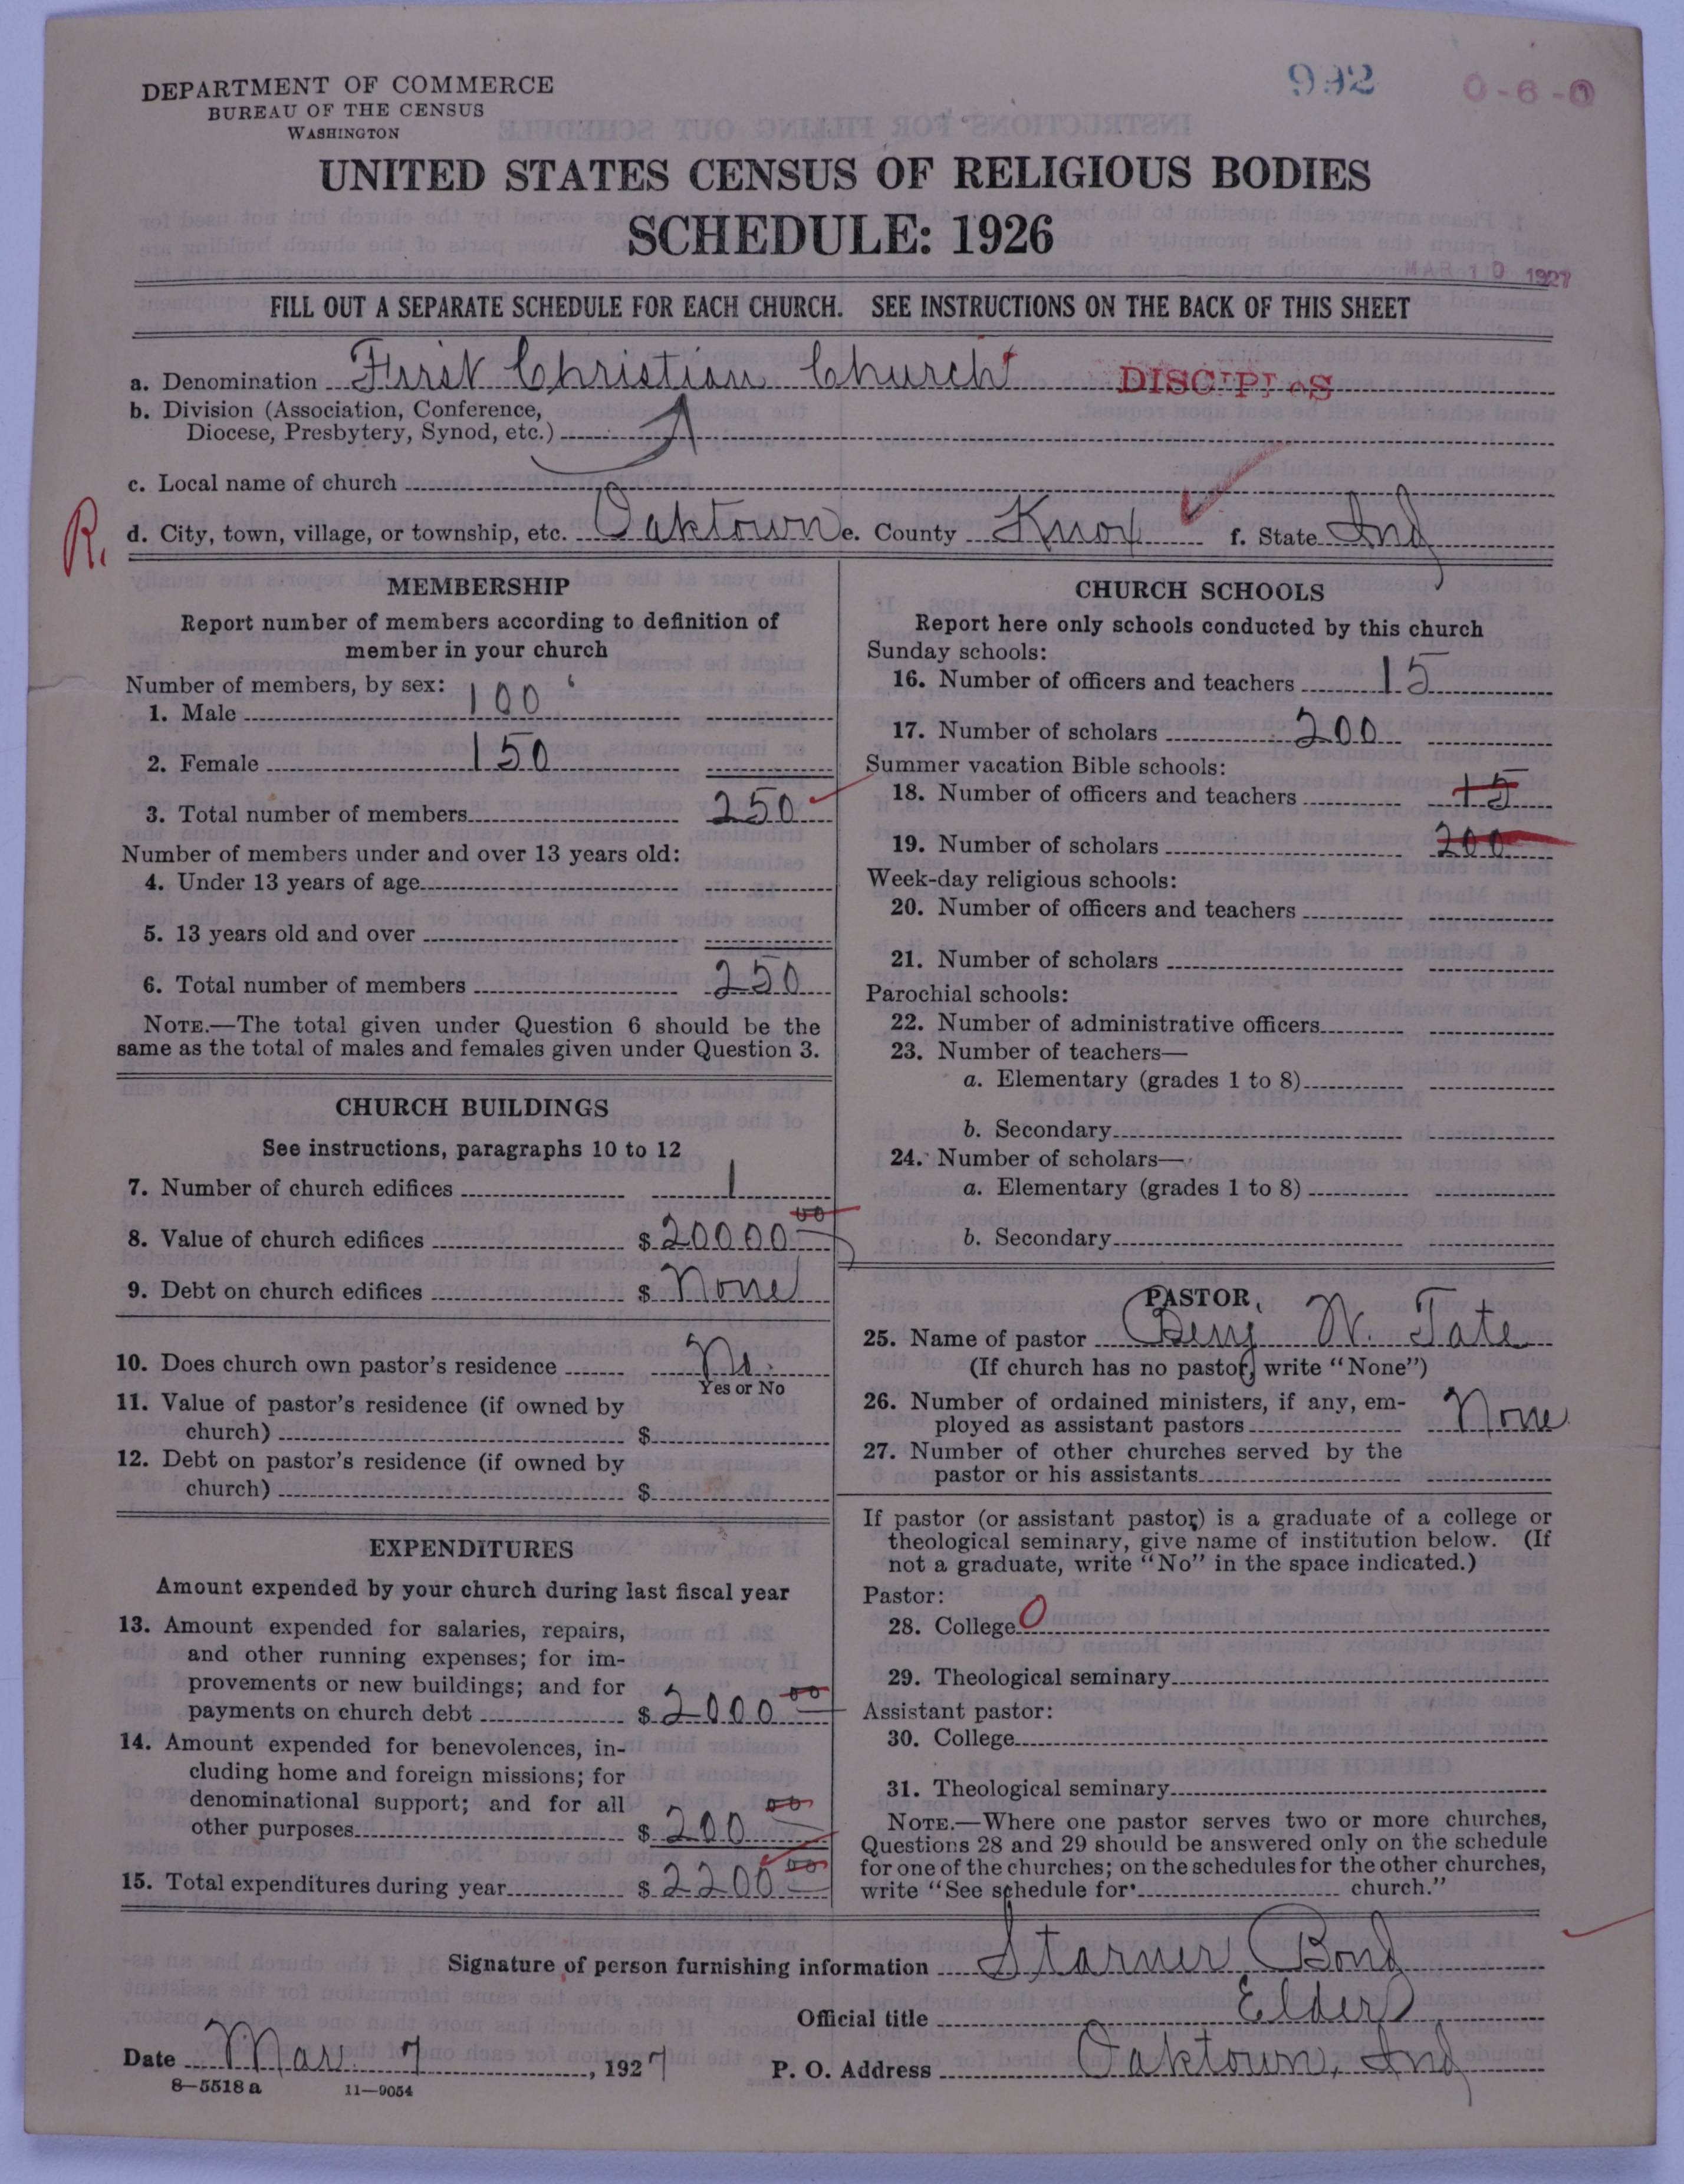 DEPARTMENT OF COMMERCE
BUREAU OF THE CENSUS
WASHINGTON
992
0-6-0
UNITED STATES CENSUS OF RELIGIOUS BODIES
SCHEDULE: 1926
MAR 10 1927
FILL OUT A SEPARATE SCHEDULE FOR EACH CHURCH. SEE INSTRUCTIONS ON THE BACK OF THIS SHEET
a. Denomination First Christian Church DISCIPLES
b. Division (Association, Conference,
Diocese, Presbytery, Synod, etc.)
c. Local name of church
R.
d. City, town, village, or township, etc. Oaktown e. County Knox f. State Ind
MEMBERSHIP
Report number of members according to definition of
member in your church
Number of members, by sex:
1. Male 100
2. Female 150
3. Total number of members 250
Number of members under and over 13 years old:
4. Under 13 years of age
5. 13 years old and over
6. Total number of members 250
NOTE.—The total given under Question 6 should be the
same as the total of males and females given under Question 3.
CHURCH BUILDINGS
See instructions, paragraphs 10 to 12
7. Number of church edifices 1
8. Value of church edifices $ 20000 00
9. Debt on church edifices $ None
10. Does church own pastor's residence No.
Yes or No
11. Value of pastor's residence (if owned by
church) $
12. Debt on pastor's residence (if owned by
church) $
EXPENDITURES
Amount expended by your church during last fiscal year
13. Amount expended for salaries, repairs,
and other running expenses; for im-
provements or new buildings; and for
payments on church debt $ 2000 00
14. Amount expended for benevolences, in-
cluding home and foreign missions; for
denominational support; and for all
other purposes $ 200 00
15. Total expenditures during year $ 2200 00
CHURCH SCHOOLS
Report here only schools conducted by this church
Sunday schools:
16. Number of officers and teachers 15
17. Number of scholars 200
Summer vacation Bible schools:
18. Number of officers and teachers 15
19. Number of scholars 200
Week-day religious schools:
20. Number of officers and teachers
21. Number of scholars
Parochial schools:
22. Number of administrative officers
23. Number of teachers—
a. Elementary (grades 1 to 8)
b. Secondary
24. Number of scholars—
a. Elementary (grades 1 to 8)
b. Secondary
PASTOR
25. Name of pastor Benj N. Tate
(If church has no pastor, write "None")
26. Number of ordained ministers, if any, em-
ployed as assistant pastors None
27. Number of other churches served by the
pastor or his assistants
If pastor (or assistant pastor) is a graduate of a college or
theological seminary, give name of institution below. (If
not a graduate, write "No" in the space indicated.)
Pastor:
28. College 0
29. Theological seminary
Assistant pastor:
30. College
31. Theological seminary
NOTE.—Where one pastor serves two or more churches,
Questions 28 and 29 should be answered only on the schedule
for one of the churches; on the schedules for the other churches,
write "See schedule for church."
Signature of person furnishing information Starner Bond
Official title Elder
Date Mar. 7, 1927 P. O. Address Oaktown, Ind
8—5518 a 11—9054